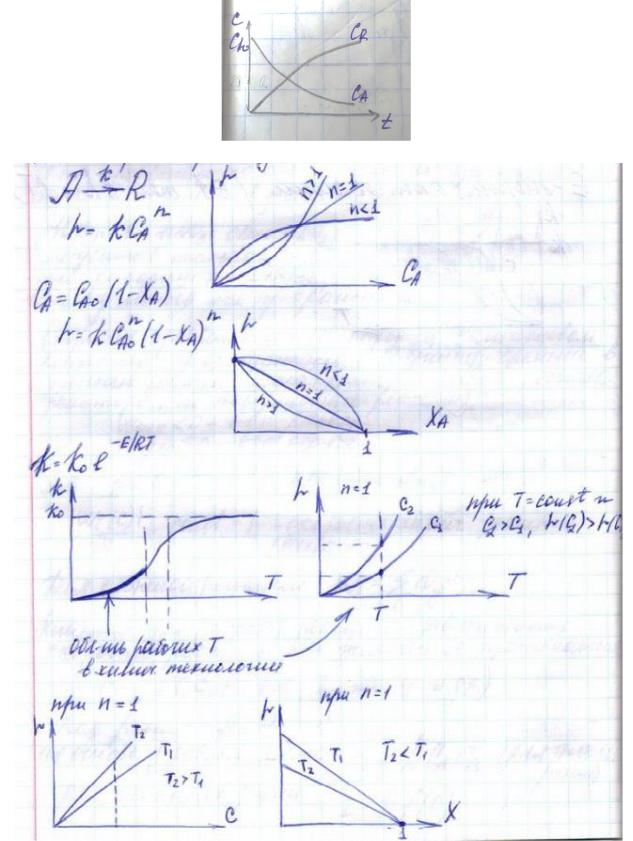 C
C_A0
C_R
C_A
t
A →k R
r
n>1
n=1
n<1
r = kC_A^n
C_A
C_A = C_A0 (1-X_A)
r = kC_A0^n (1-X_A)^n
r
n<1
n=1
n>1
X_A
1
K = K_0 e^-E/RT
k
k_0
T
r
n=1
C_2
C_1
при T=const и
C_2>C_1, r(C_2)>r(C
T
T
обл-ть рабочих T
в химич технологии
при n=1
r
T_2
T_1
T_2>T_1
C
при n=1
r
T_1
T_2
T_2<T_1
1
X